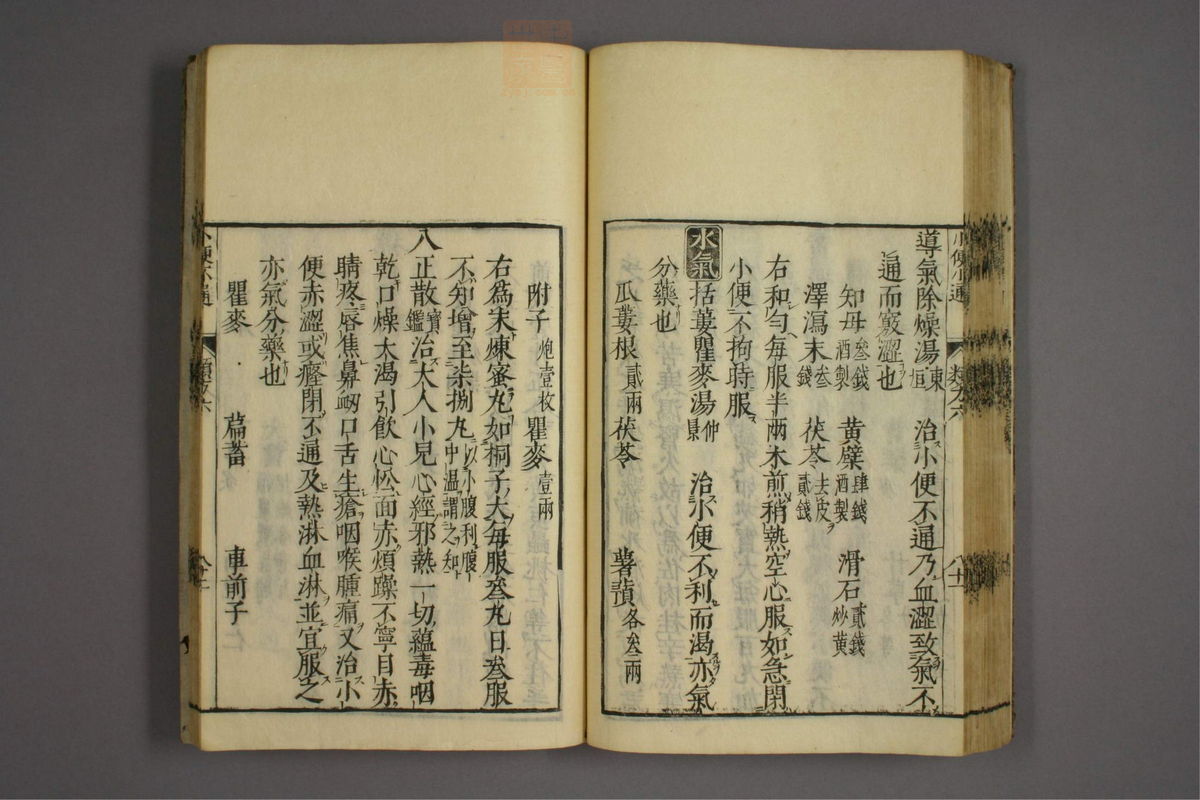 導氣除燥湯東垣 治小便不通乃血澀致氣不
通而竅澀也
知母叁錢酒製 黃蘗肆錢酒製 滑石貳錢炒黃
澤瀉末叁錢 茯苓去皮貳錢
右和勻每服半兩水煎稍熱空心服如急閉
小便不拘時服
水氣 括蔞瞿麥湯仲景 治小便不利而渴亦氣
分藥也
瓜蔞根貳兩 茯苓 薯蕷各叁兩
附子炮壹枚 瞿麥壹兩
右爲末煉蜜丸如桐子大每服叁丸日叁服
不知增至柒捌丸以小便利腹中溫謂之知
八正散寶鑑 治大人小兒心經邪熱一切蘊毒咽
乾口燥大渴引飲心忪面赤煩躁不寧目赤
睛疼唇焦鼻衂口舌生瘡咽喉腫痛又治小
便赤澀或癃閉不通及熱淋血淋並宜服之
亦氣分藥也
瞿麥 萹蓄 車前子